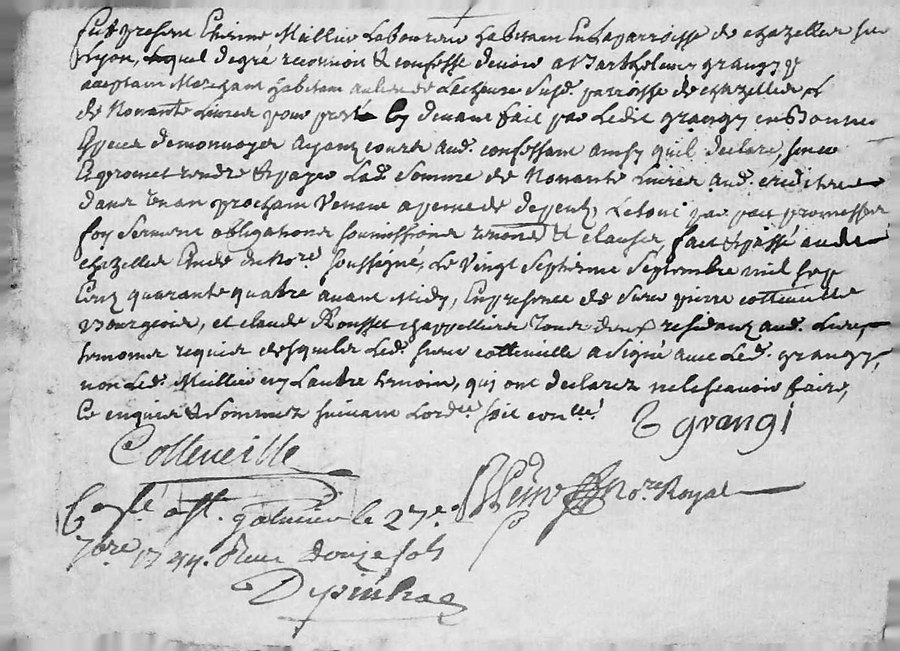 fut present Etienne Meillier Laboureur habitant En Laparroisse de chazelles sur
Lyon, Lequel degré reconnoit & confesse devoir a Barthelemy grangy y
aceptant Marchant habitant au lieu de susd. parroisse de chazelles
de Nonante Livres pour prest Cy devant fait par Ledit grangy en Bonnes
Especes demonnoyes Ayant cours aud. confessant ainsy quil declare, somme
Et promet rendre & payer Lad. Somme de Nonante Livres aud. creditteur
dans un an prochain venant a peine de depens, Letout par pact promesses
foy serment obligations soumissions renons. & clauses, fait & passé aud.
chazelles Etude du No.re soussigné, Le vingt Septieme Septembre mil sept
Cent quarante quatre avant Midy, En presence de Sieur pierre cotteneille
Bourgeois, et claude Rousset chappellier tous deux residants aud. Lieu,
temoins requis desquels Led. sieur cotteneille a signé avec Led. grangy,
non Led. Meillier ny Lautre temoin, qui ont declarez ne le scavoir faire,
Ce enquis & sommez suivant Lord.ce soit con.llé
B grangi
Cotteneille
No.re Royal
Con.lé a St. galmier le 27e
7bre 1744. Reçu douze sols